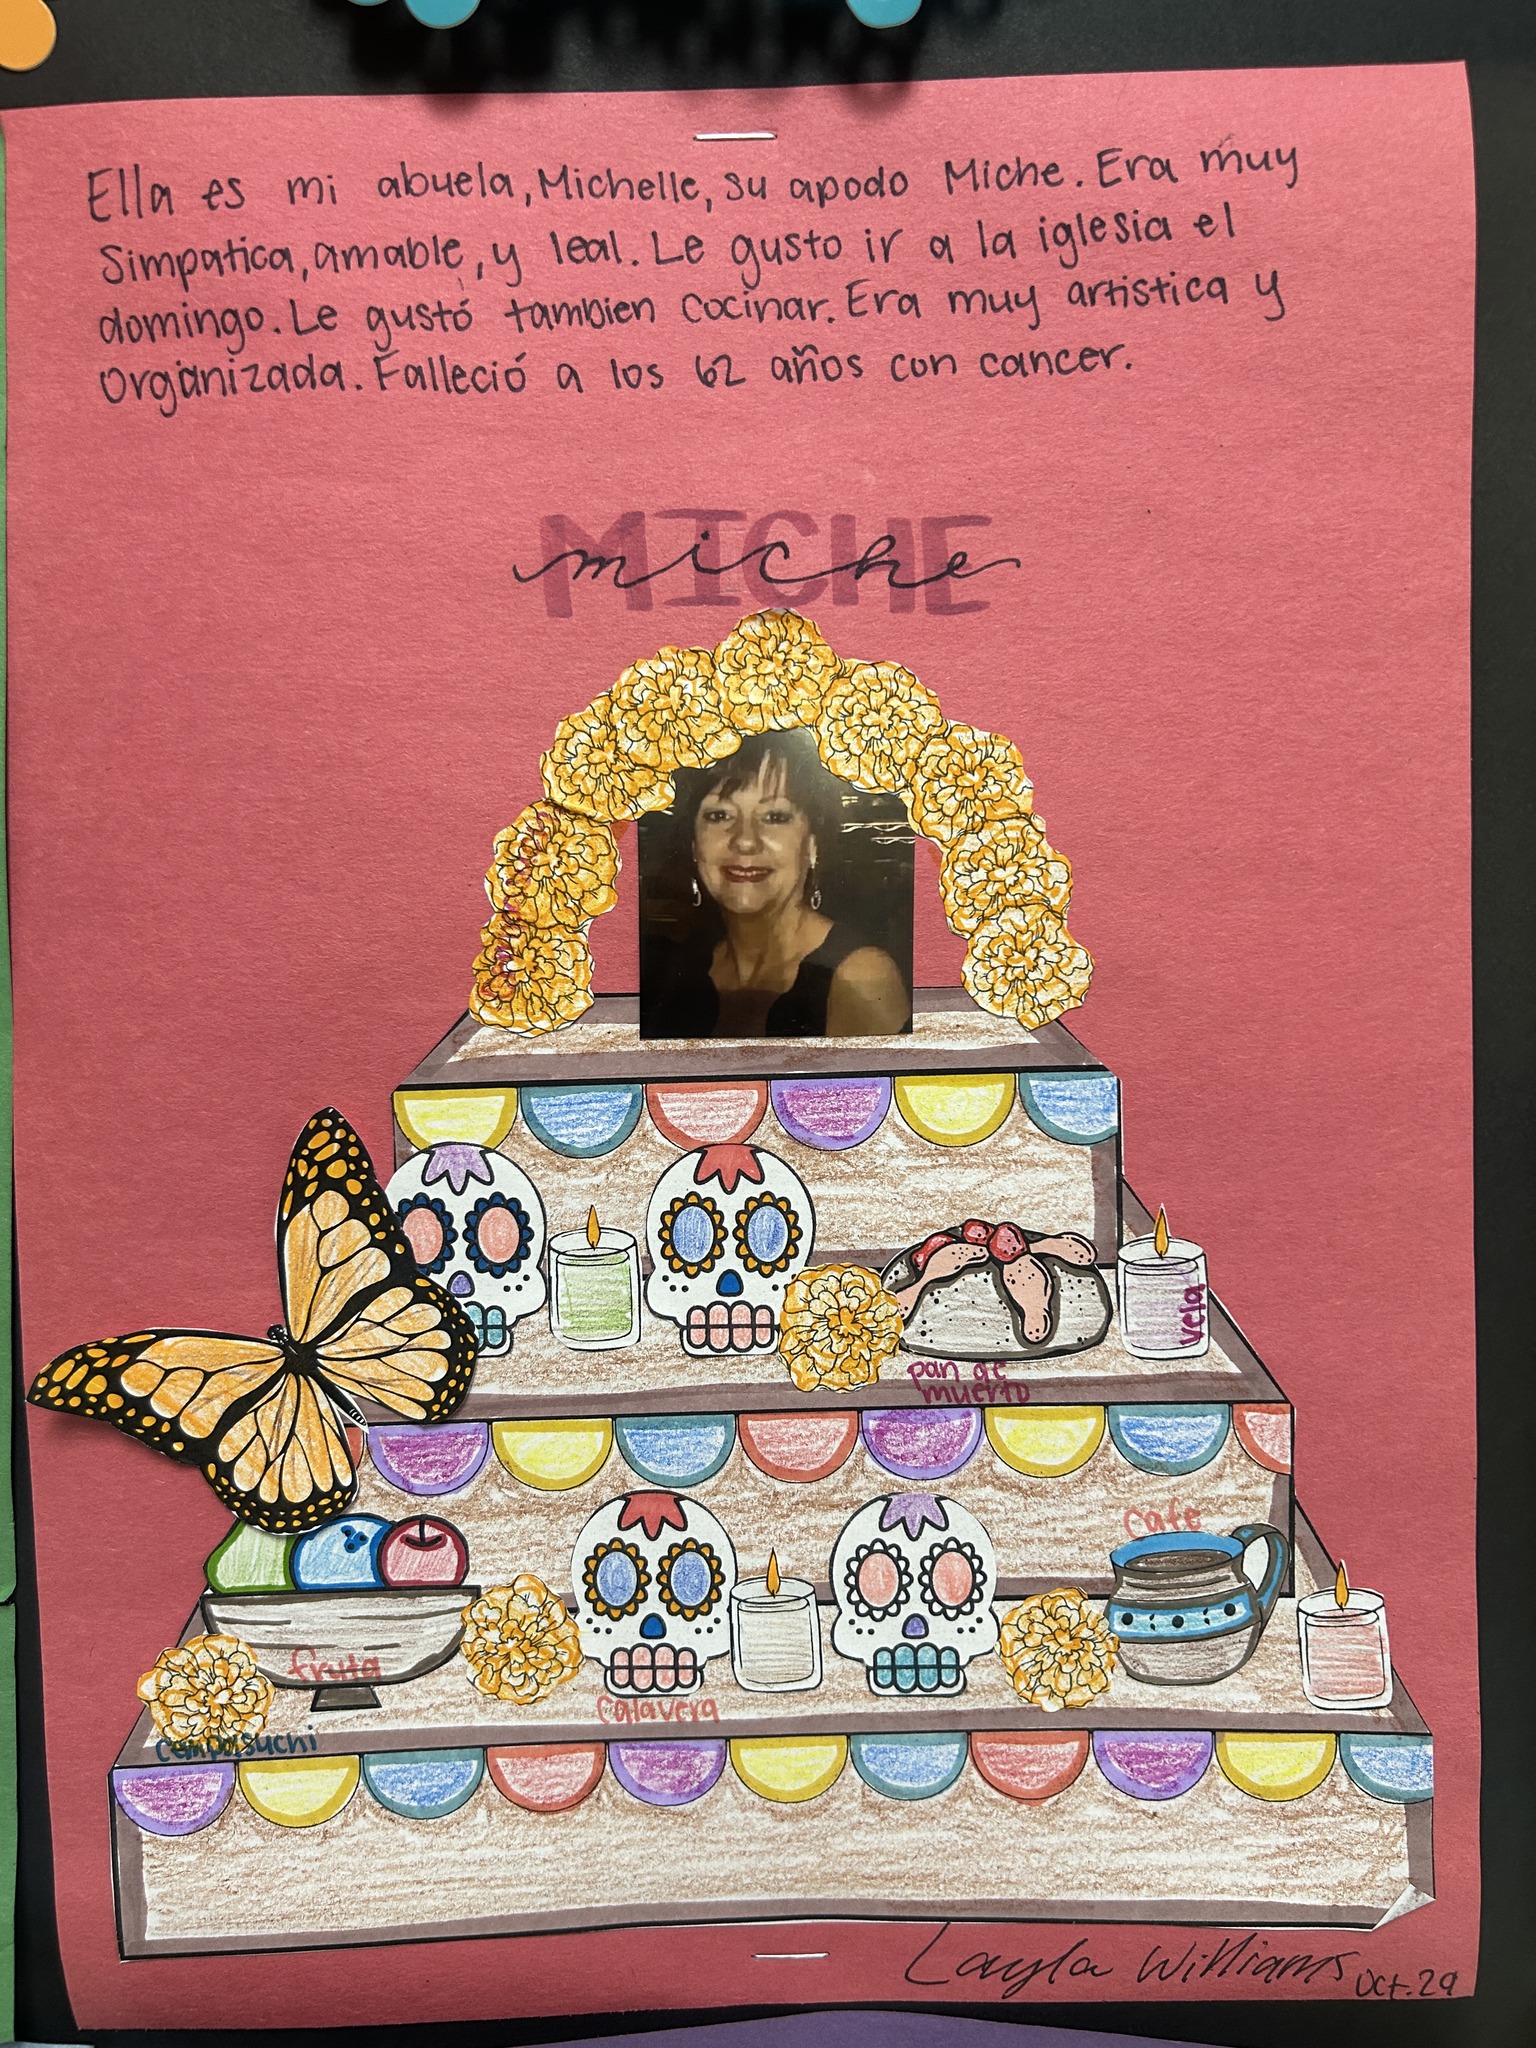 Ella es mi abuela, Michelle, su apodo Miche. Era muy
Simpatica, amable, y leal. Le gusto ir a la iglesia el
domingo. Le gustó tambien cocinar. Era muy artistica y
organizada. Falleció a los 62 años con cancer.
MICHE
miche
vela
pan de
muerto
cafe
fruta
calavera
cempasuchi
Layla Williams Oct. 29